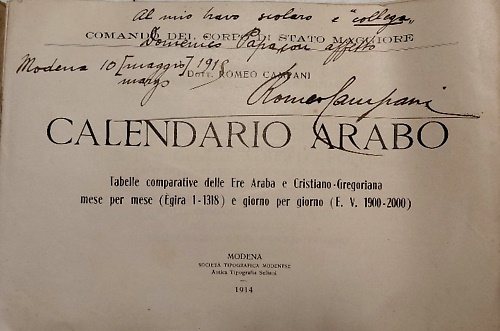 Al mio bravo scolaro e "collega"
COMANDO DEL CORPO DI STATO MAGGIORE
Domenico affetto
Modena 10 [maggio] 1918
marzo
DOTT. ROMEO CAMPANI
Romeo Campani
CALENDARIO ARABO
Tabelle comparative delle Ere Araba e Cristiano-Gregoriana
mese per mese (Egira 1-1318) e giorno per giorno (E. V. 1900-2000)
MODENA
SOCIETÀ TIPOGRAFICA MODENESE
Antica Tipografia Soliani
1914